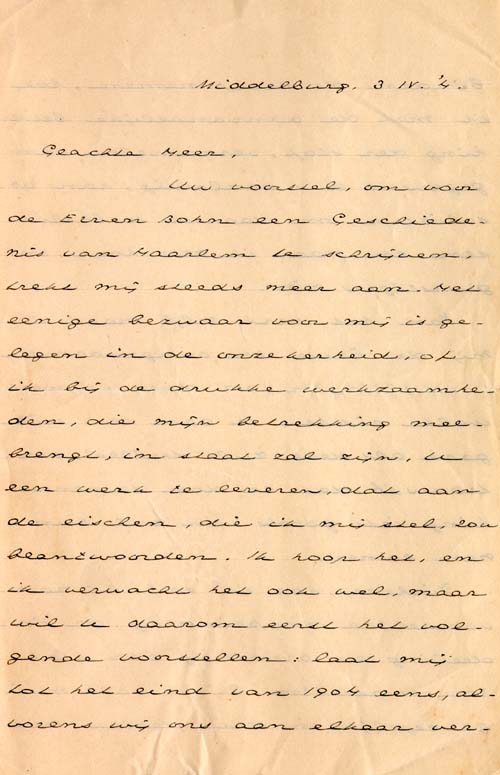 Middelburg, 3 IV. '4.
Geachte Heer,
Uw voorstel, om voor
de Erven Bohn een Geschiede-
nis van Haarlem te schrijven,
trekt mij steeds meer aan. Het
eenige bezwaar voor mij is ge-
legen in de onzekerheid, of
ik bij de drukke werkzaamhe-
den, die mijn betrekking mee-
brengt, in staat zal zijn, U
een werk te leveren, dat aan
de eischen, die ik mij stel, zou
beantwoorden. Ik hoop het, en
ik verwacht het ook wel, maar
wil U daarom eerst het vol-
gende voorstellen: laat mij
tot het eind van 1904 eens, al-
vorens wij ons aan elkaar ver-